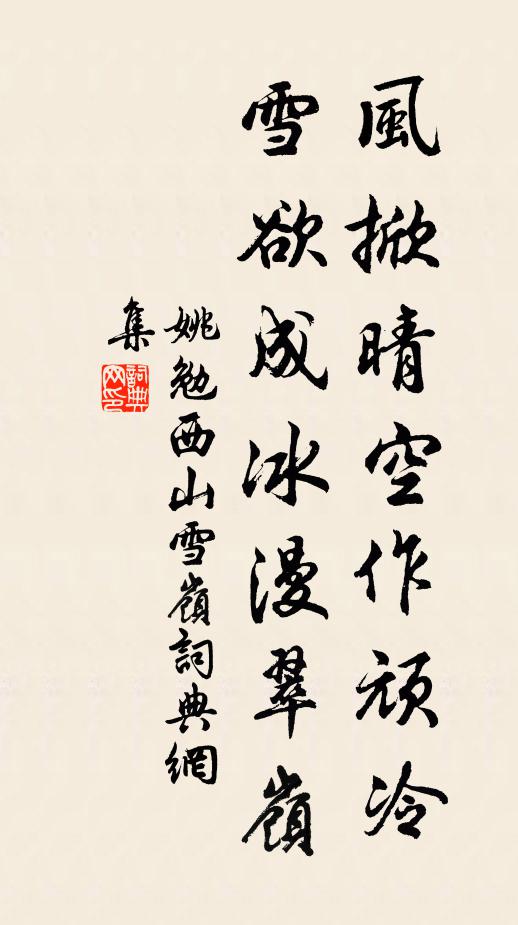 風掀晴空作頑冷
雪欲成冰漫翠嶺
姚勉西山雪嶺詞典網
集
詞典
网印